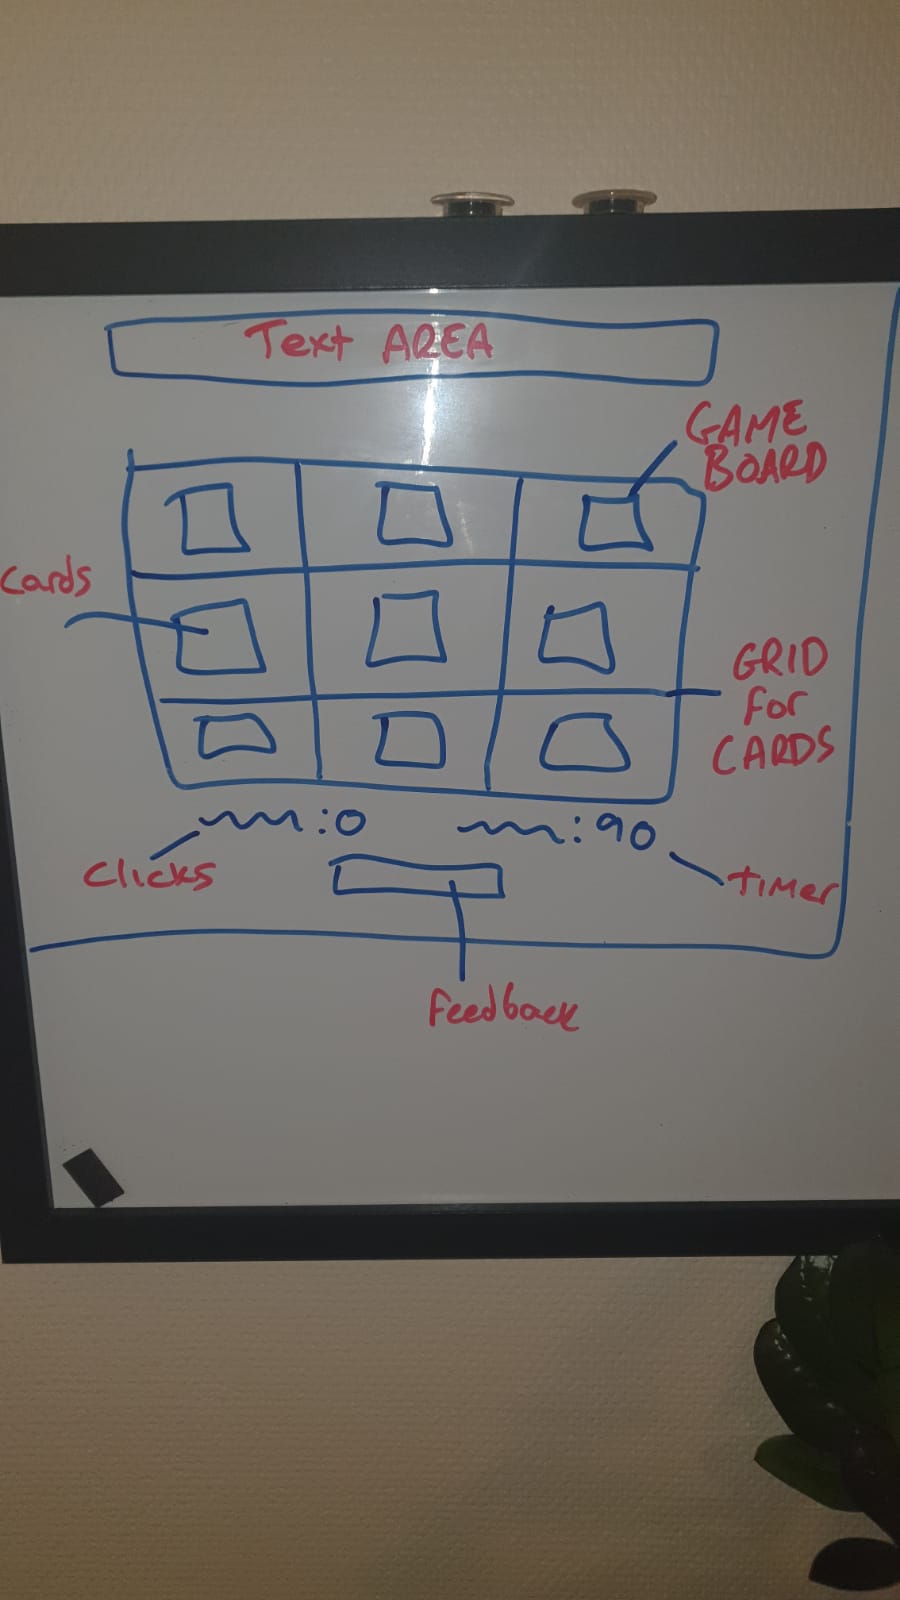 Text AREA
GAME
BOARD
Cards
GRID
for
CARDS
:0
:90
Clicks
Timer
Feedback